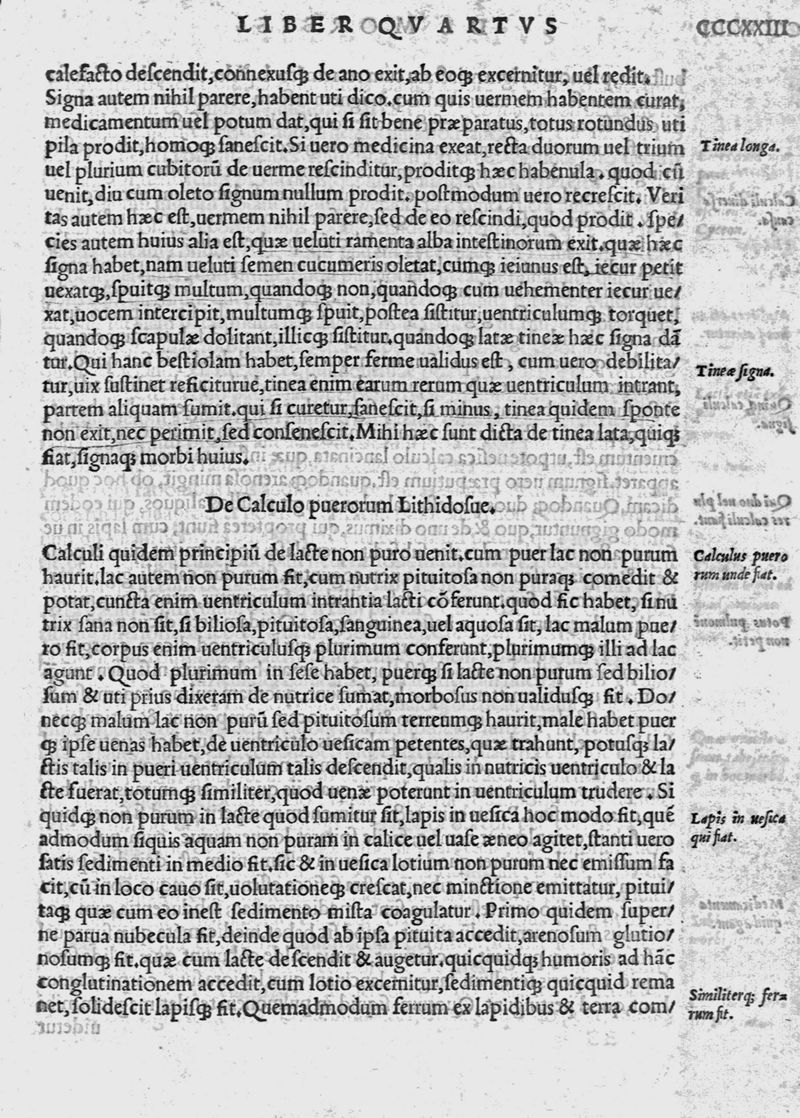 LIBER QVARTVS
CCCXXIII
calefacto deſcendit,connexuſqꝫ de ano exit,ab eoqꝫ excernitur, uel redit.
Signa autem nihil parere,habent uti dico.cum quis uermem habentem curat,
medicamentum uel potum dat,qui ſi ſit bene præparatus,totus rotundus uti
pila prodit,homoqꝫ ſaneſcit.Si uero medicina exeat,recta duorum uel trium
Tinea longa.
uel plurium cubitorū de uerme reſcinditur,proditqꝫ hæc habenula. quod cū
uenit,diu cum oleto ſignum nullum prodit. poſtmodum uero recreſcit. Veri
tas autem hæc eſt,uermem nihil parere,ſed de eo reſcindi,quod prodit. ſpe/
cies autem huius alia eſt,quæ ueluti ramenta alba inteſtinorum exit.quæ hæc
ſigna habet,nam ueluti ſemen cucumeris oletat,cumqꝫ ieiunus eſt, iecur petit
uexatqꝫ,ſpuitqꝫ multum,quandoqꝫ non,quandoqꝫ cum uehementer iecur ue/
xat,uocem intercipit,multumqꝫ ſpuit,poſtea ſiſtitur,uentriculumqꝫ torquet,
quandoqꝫ ſcapulæ dolitant,illicqꝫ ſiſtitur.quandoqꝫ latæ tineæ hæc ſigna dā
tur.Qui hanc beſtiolam habet,ſemper ferme ualidus eſt, cum uero debilita/
Tineæ ſigna.
tur,uix ſuſtinet reficiturue,tinea enim earum rerum quæ uentriculum intrant,
partem aliquam ſumit.qui ſi curetur,ſaneſcit,ſi minus, tinea quidem ſponte
non exit,nec perimit,ſed conſeneſcit.Mihi hæc ſunt dicta de tinea lata,quiqꝫ
fiat,ſignaqꝫ morbi huius.
De Calculo puerorum Lithidoſue.
Calculi quidem principiū de lacte non puro uenit.cum puer lac non purum
Calculus puero
haurit.lac autem non purum fit,cum nutrix pituitoſa non puraqꝫ comedit &
rum unde fiat.
potat,cuncta enim uentriculum intrantia lacti cōferunt.quod ſic habet, ſi nu
trix ſana non ſit,ſi bilioſa,pituitoſa,ſanguinea,uel aquoſa ſit, lac malum pue/
ro fit,corpus enim uentriculuſqꝫ plurimum conferunt,plurimumqꝫ illi ad lac
agunt. Quod plurimum in ſeſe habet, puerqꝫ ſi lacte non purum ſed bilio/
ſum & uti prius dixeram de nutrice ſumat,morboſus non ualiduſqꝫ fit. Do/
necqꝫ malum lac non purū ſed pituitoſum terreumqꝫ haurit,male habet puer
qꝫ ipſe uenas habet,de uentriculo ueſicam petentes,quæ trahunt, potuſqꝫ la/
ctis talis in pueri uentriculum talis deſcendit,qualis in nutricis uentriculo & la
cte fuerat,totumqꝫ ſimiliter,quod uenæ poterunt in uentriculum trudere. Si
quidqꝫ non purum in lacte quod ſumitur ſit,lapis in ueſica hoc modo fit,quē
Lapis in ueſica
admodum ſiquis aquam non puram in calice uel uaſe æneo agitet,ſtanti uero
qui fiat.
ſatis ſedimenti in medio fit,ſic & in ueſica lotium non purum nec emiſſum fa
cit,cū in loco cauo ſit,uolutationeqꝫ creſcat,nec minctione emittatur, pitui/
taqꝫ quæ cum eo ineſt ſedimento miſta coagulatur. Primo quidem ſuper/
ne parua nubecula fit,deinde quod ab ipſa pituita accedit,arenoſum glutio/
noſumqꝫ fit.quæ cum lacte deſcendit & augetur.quicquidqꝫ humoris ad hāc
conglutinationem accedit,cum lotio excernitur,ſedimentiqꝫ quicquid rema
Similiterqꝫ fer=
net,ſolideſcit lapiſqꝫ fit.Quemadmodum ferrum ex lapidibus & terra com/
rum fit.